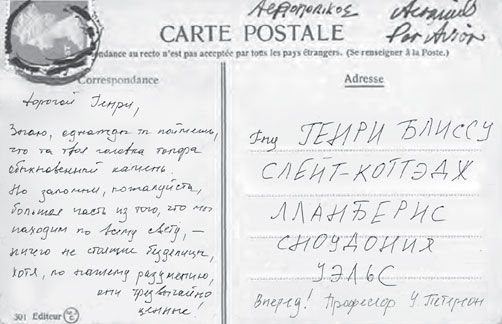 Αεροπορικός
Par Avion
CARTE POSTALE
ndance au recto n'est pas acceptée par tous les pays étrangers. (Se renseigner à la Poste.)
Correspondance
Дорогой Генри,
Знаю, однажды ты поймешь,
что та твоя головка топора
обыкновенный камень.
Но запомни, пожалуйста,
большая часть из того, что мы
находим по всему свету, –
ничего не стоящие безделицы,
хотя, по нашему разумению,
они чрезвычайно
ценные!
301 Editeur
Adresse
ГЕНРИ БЛИССУ
СЛЕЙТ-КОТТЭДЖ
ЛЛАНБЕРИС
СНОУДОНИЯ
УЭЛЬС
Вперед! Профессор У. Петерсон